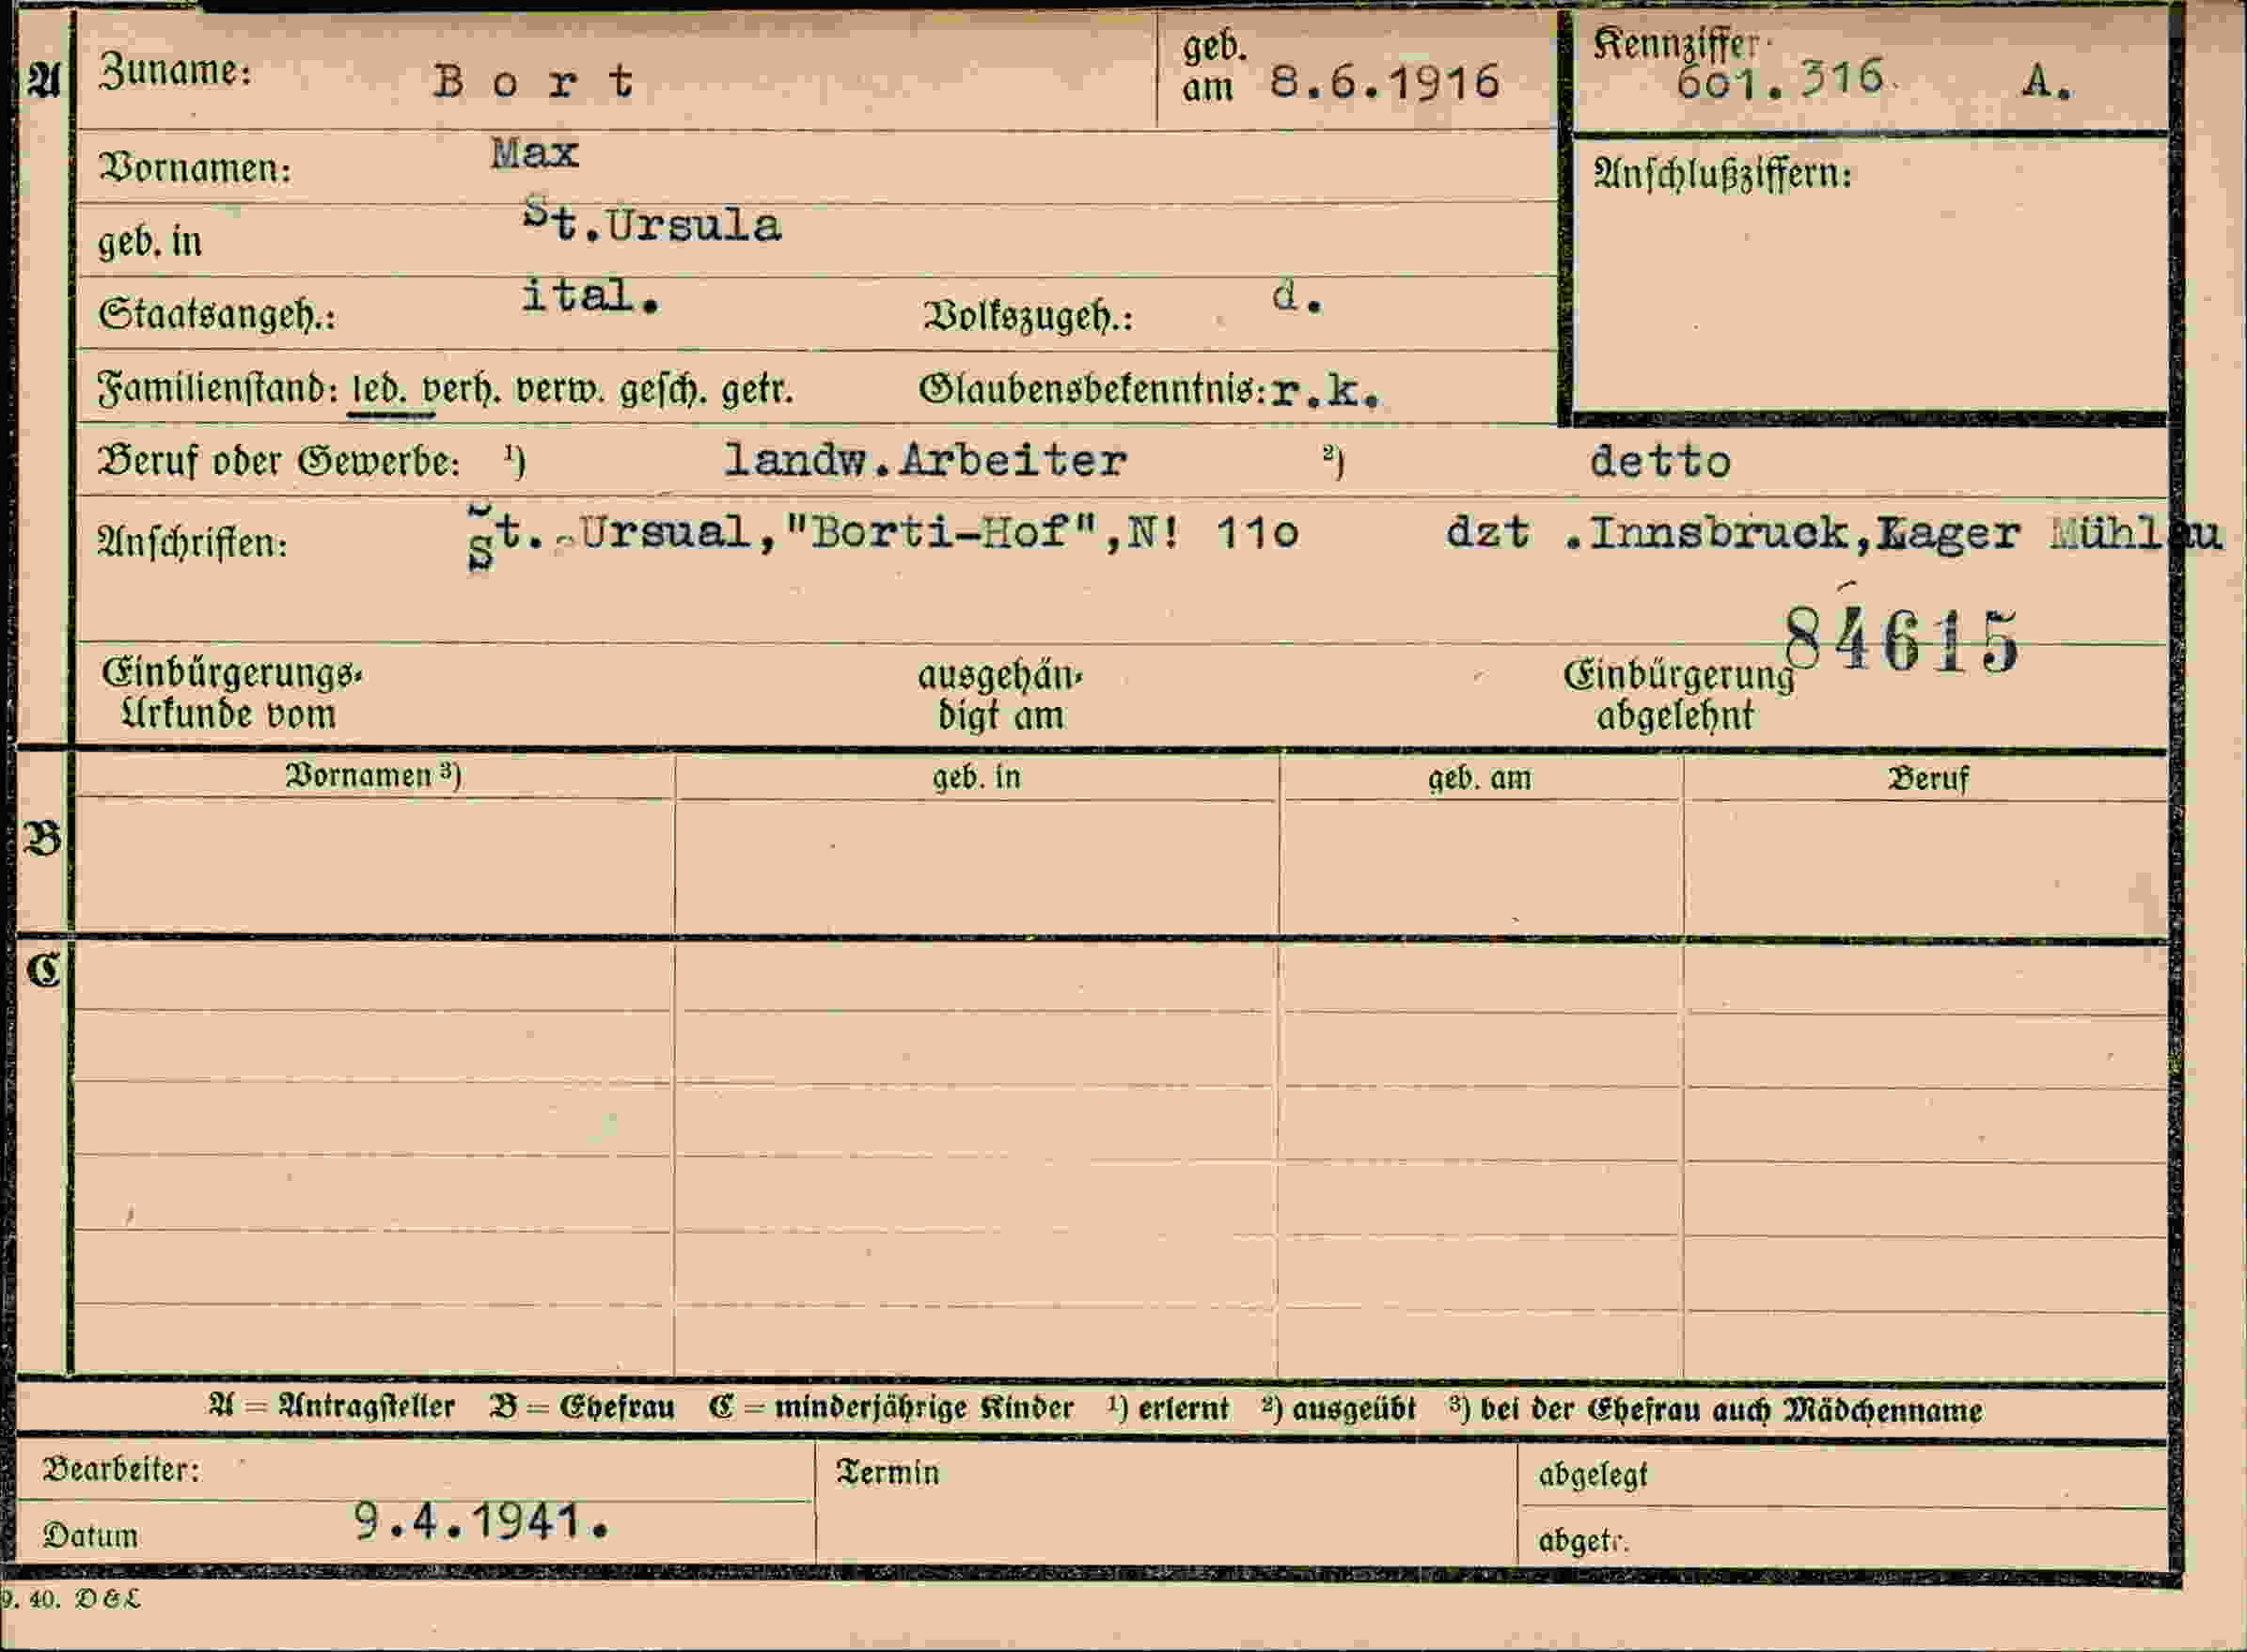 A Zuname: Bort geb. am 8.6.1916 Kennziffer 601.316. A.
Vornamen: Max Anschlußziffern:
geb. in St.Ursula
Staatsangeh.: ital. Volkszugeh.: d.
Familienstand: led. verh. verw. gesch. getr. Glaubensbekenntnis: r.k.
Beruf oder Gewerbe: ¹) landw.Arbeiter ²) detto
Anschriften: St. Ursual,"Borti-Hof",N! 11o dzt .Innsbruck,Lager Mühlau
84615
Einbürgerungs- Urkunde vom ausgehän- digt am Einbürgerung abgelehnt
Vornamen ³) geb. in geb. am Beruf
B
C
A = Antragsteller B = Ehefrau C = minderjährige Kinder ¹) erlernt ²) ausgeübt ³) bei der Ehefrau auch Mädchenname
Bearbeiter: Termin abgelegt
Datum 9.4.1941. abgetr.
9. 40. D & L